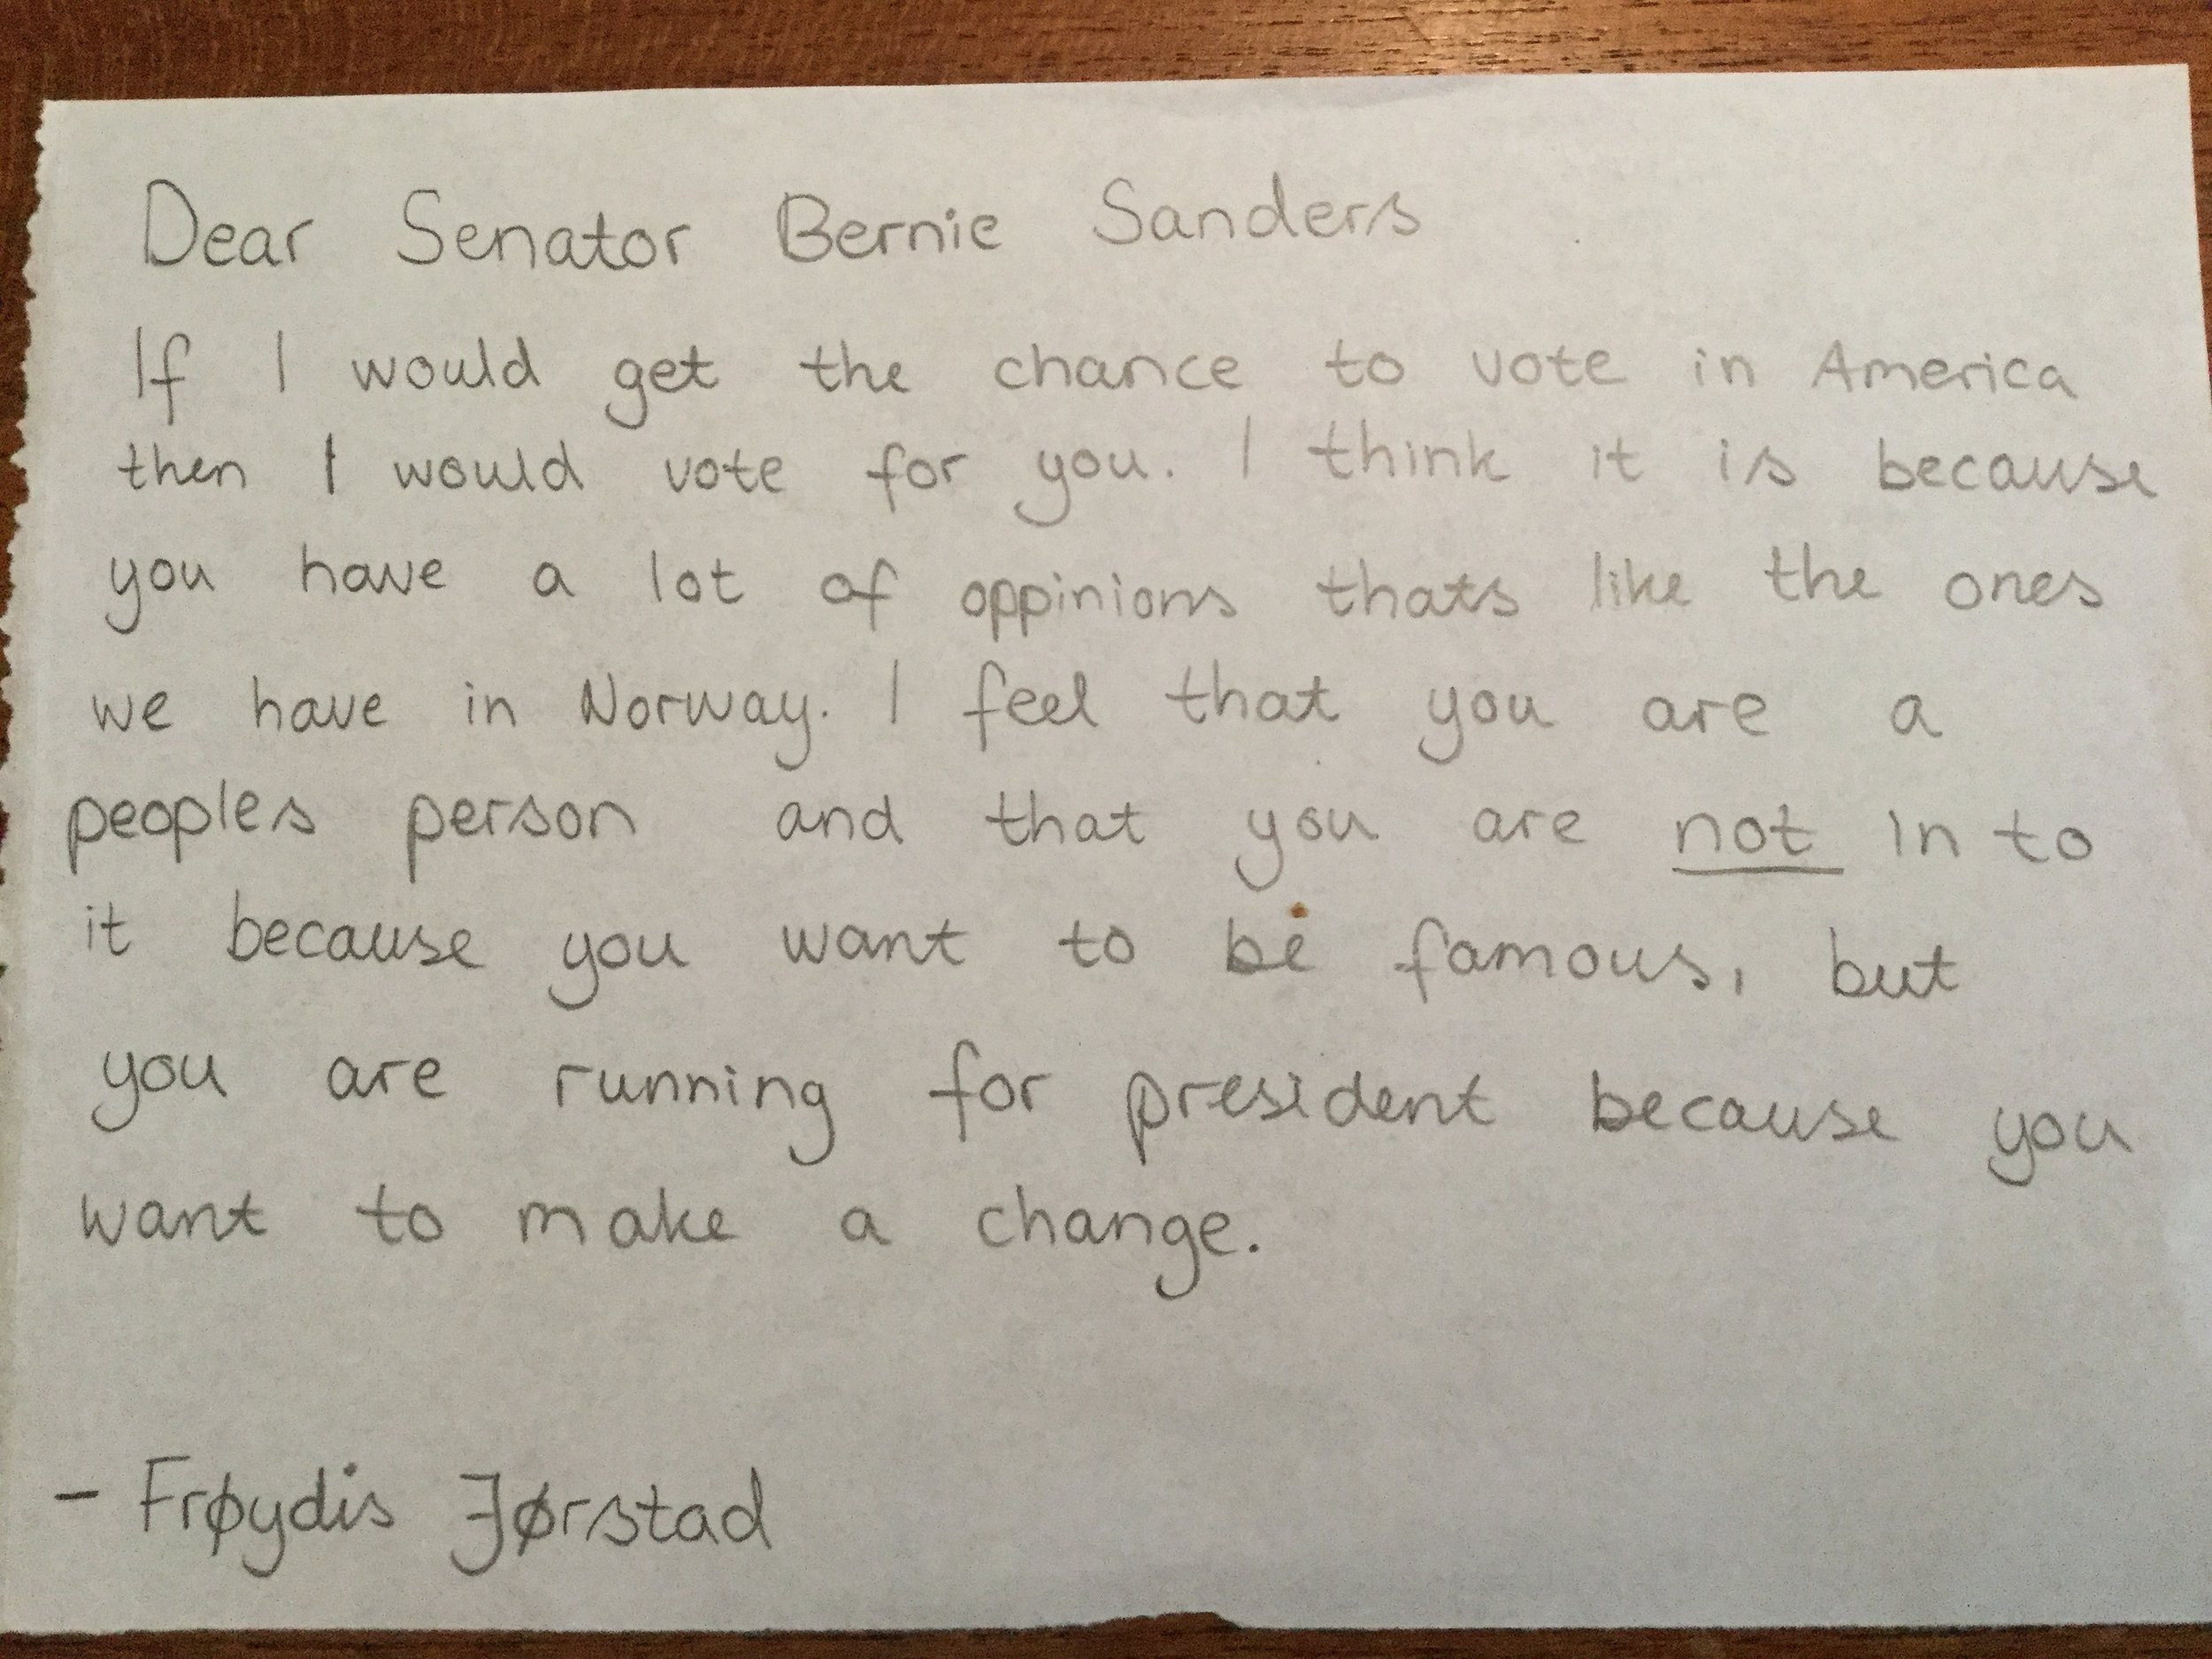 Dear Senator Bernie Sanders
If I would get the chance to vote in America
then I would vote for you. I think it is because
you have a lot of oppinions thats like the ones
we have in Norway. I feel that you are a
peoples person and that you are not in to
it because you want to be famous, but
you are running for president because you
want to make a change.
- Frøydis Jørstad